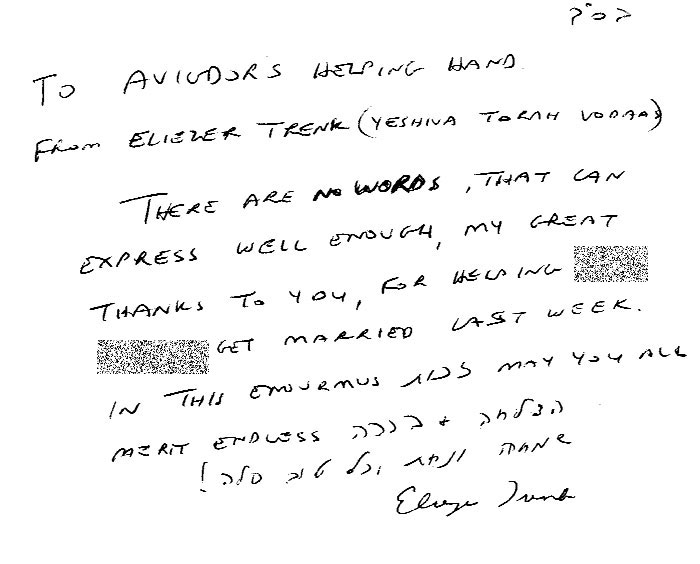 בס"ד
TO AVIGDOR'S HELPING HAND
FROM ELIEZER TRENK (YESHIVA TORAH VODAAS)
THERE ARE NO WORDS, THAT CAN
EXPRESS WELL ENOUGH, MY GREAT
THANKS TO YOU, FOR HELPING
GET MARRIED LAST WEEK.
IN THIS ENOURMUS זכות MAY YOU ALL
MERIT ENDLESS ברכה + הצלחה
שמחה ונחת וכל טוב סלה!
Eliezer Trenk